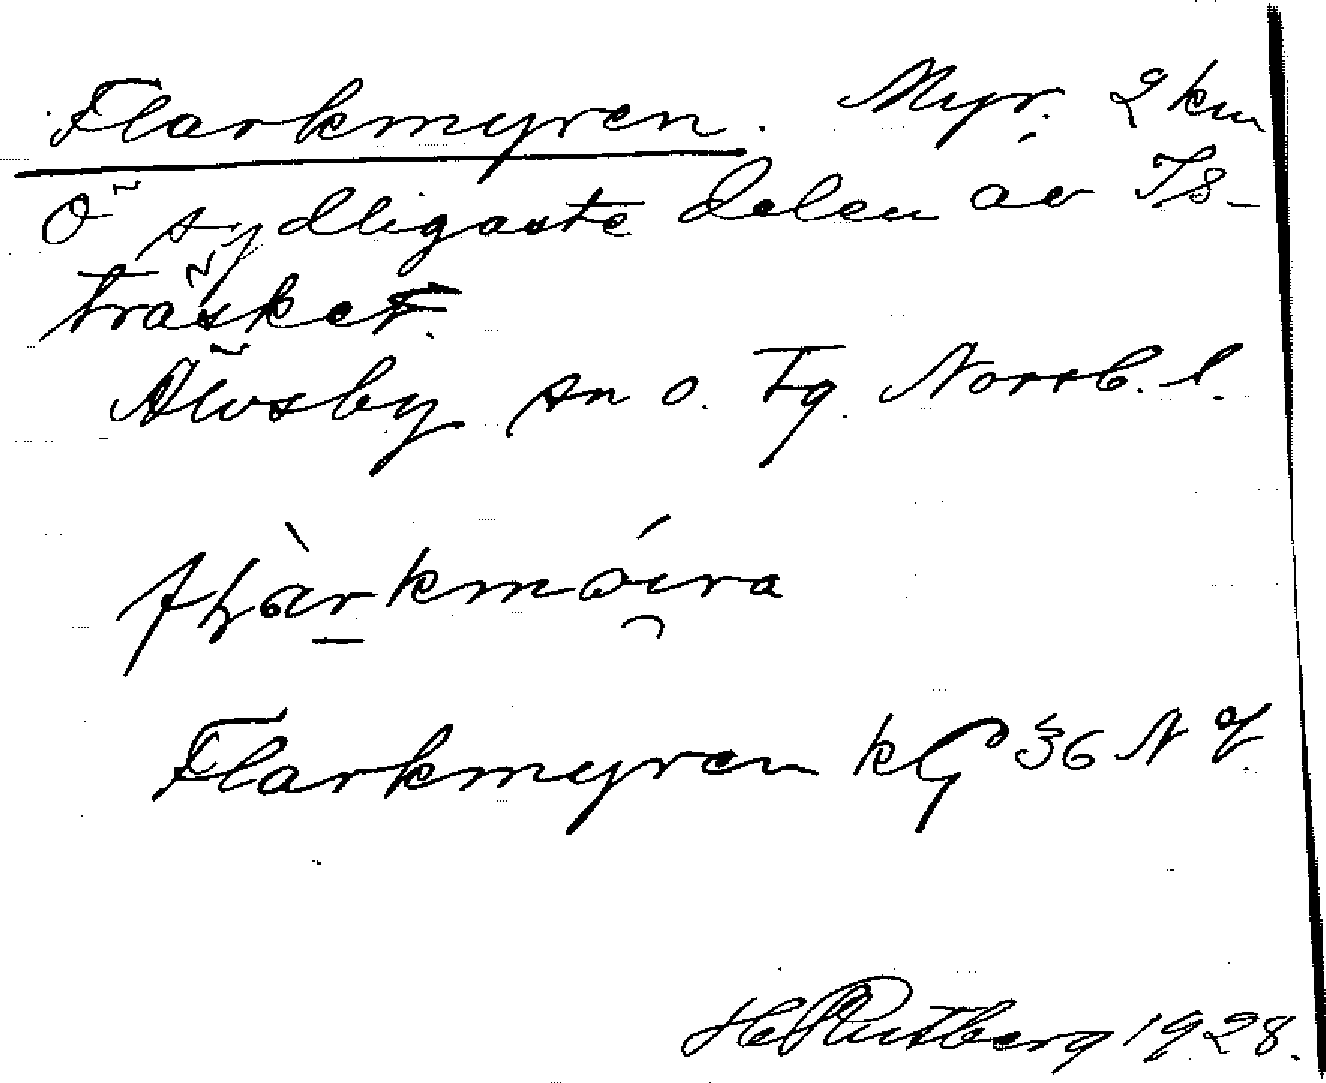 Flarkmyren. Myr. 2 km
Ö sydligaste delen av Is-
träsket.
Älvsby sn o. tg. Norrb. l.
Flarkmyren kg 36 N
H Rutberg 1928.